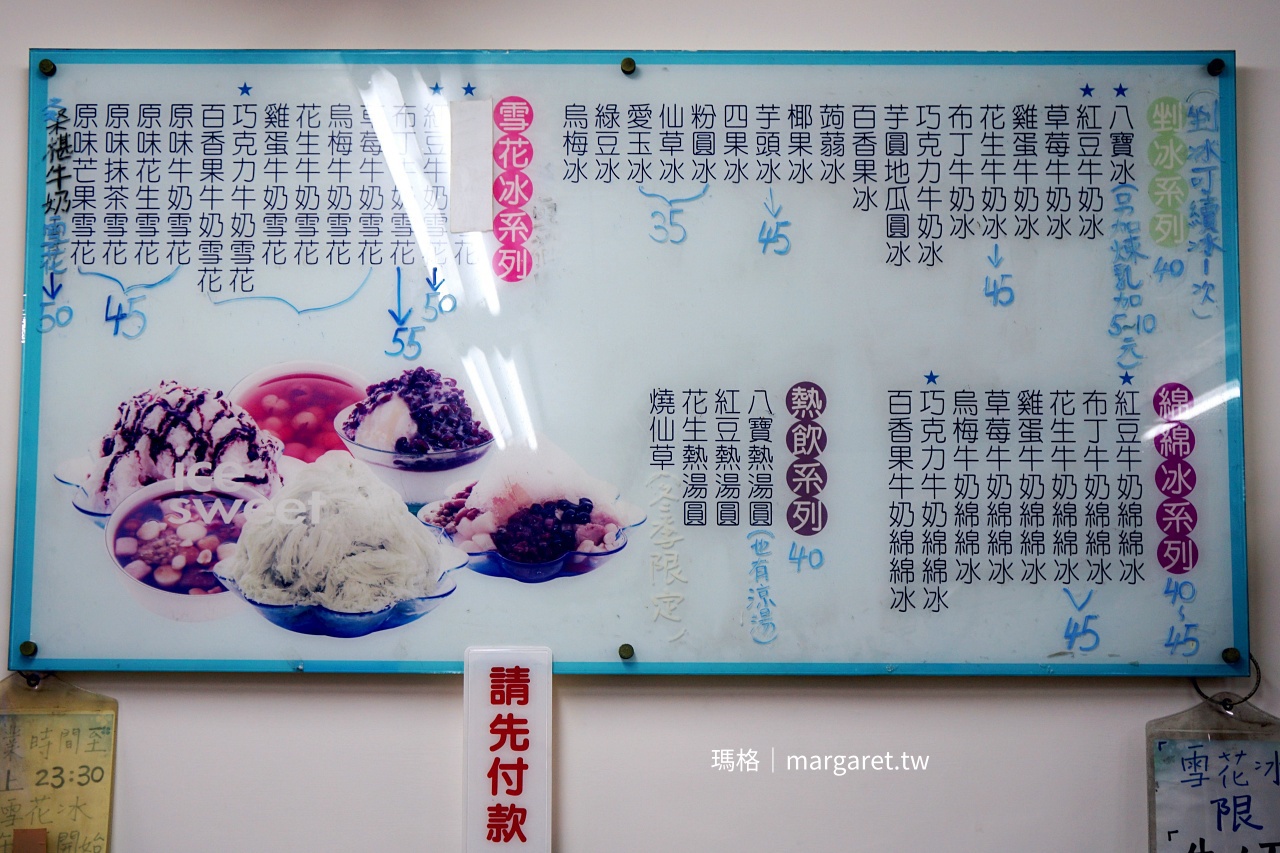 剉冰可續冰一次)
剉冰系列
40
八寶冰(另加煉乳加5~10元)
紅豆牛奶冰
草莓牛奶冰
雞蛋牛奶冰
花生牛奶冰
45
布丁牛奶冰
巧克力牛奶冰
芋圓地瓜圓冰
百香果冰
蒟蒻冰
椰果冰
芋頭冰
45
四果冰
粉圓冰
仙草冰
愛玉冰
35
綠豆冰
烏梅冰
雪花冰系列
紅豆牛奶雪花
50
布丁牛奶雪花
55
草莓牛奶雪花
烏梅牛奶雪花
花生牛奶雪花
雞蛋牛奶雪花
巧克力牛奶雪花
百香果牛奶雪花
原味牛奶雪花
原味花生雪花
原味抹茶雪花
原味芒果雪花
45
桑椹牛奶雪花
50
綿綿冰系列
40~45
紅豆牛奶綿綿冰
布丁牛奶綿綿冰
花生牛奶綿綿冰
45
雞蛋牛奶綿綿冰
草莓牛奶綿綿冰
烏梅牛奶綿綿冰
巧克力牛奶綿綿冰
百香果牛奶綿綿冰
熱飲系列
40
八寶熱湯圓(也有涼湯)
紅豆熱湯圓
花生熱湯圓
燒仙草(冬季限定)
ice
sweet
請先付款
時間至
上 23:30
雪花冰
開始
「雪花冰
限
瑪格|margaret.tw